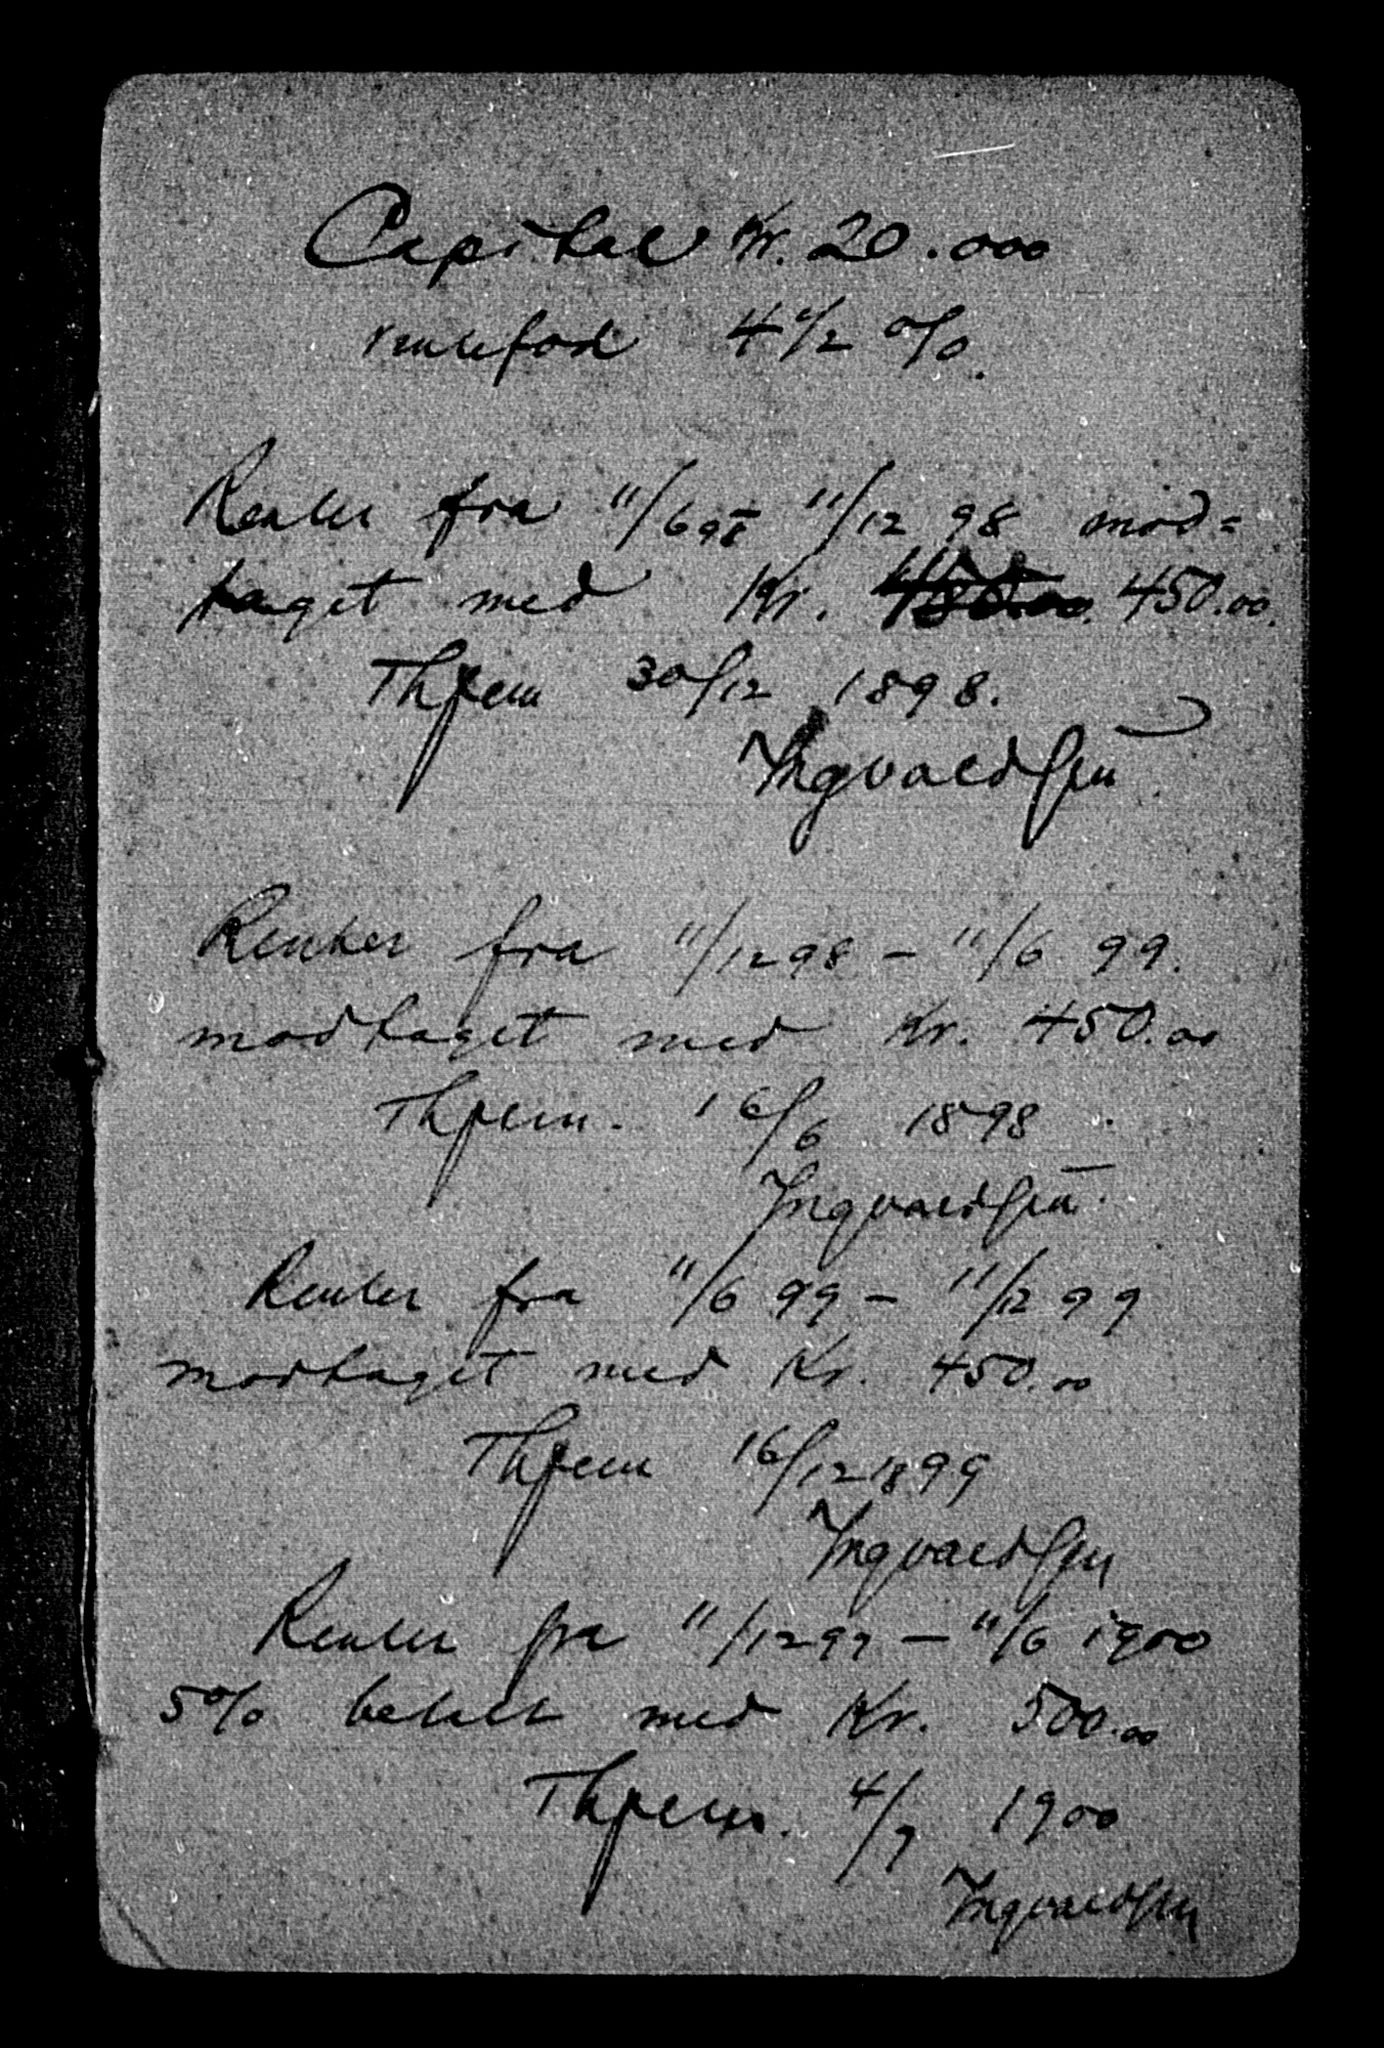 Capital Kr. 20.000
rentefod 4 1/2 %.
Renter fra 11/6 98 11/12 98 mod=
taget med Kr. 450.00.
Thjem 30/12 1898.
Ingvaldsen
Renter fra 11/12 98 – 11/6 99.
modtaget med Kr. 450.00
Thjem. 16/6 1898
Ingvaldsen.
Renter fra 11/6 99 – 11/12 99
modtaget med Kr. 450.00
Thjem 16/12 1899
Ingvaldsen
Renter fra 11/12 99 – 11/6 1900
5% betalt med Kr. 500.00
Thjem. 4/7 1900
Ingvaldsen